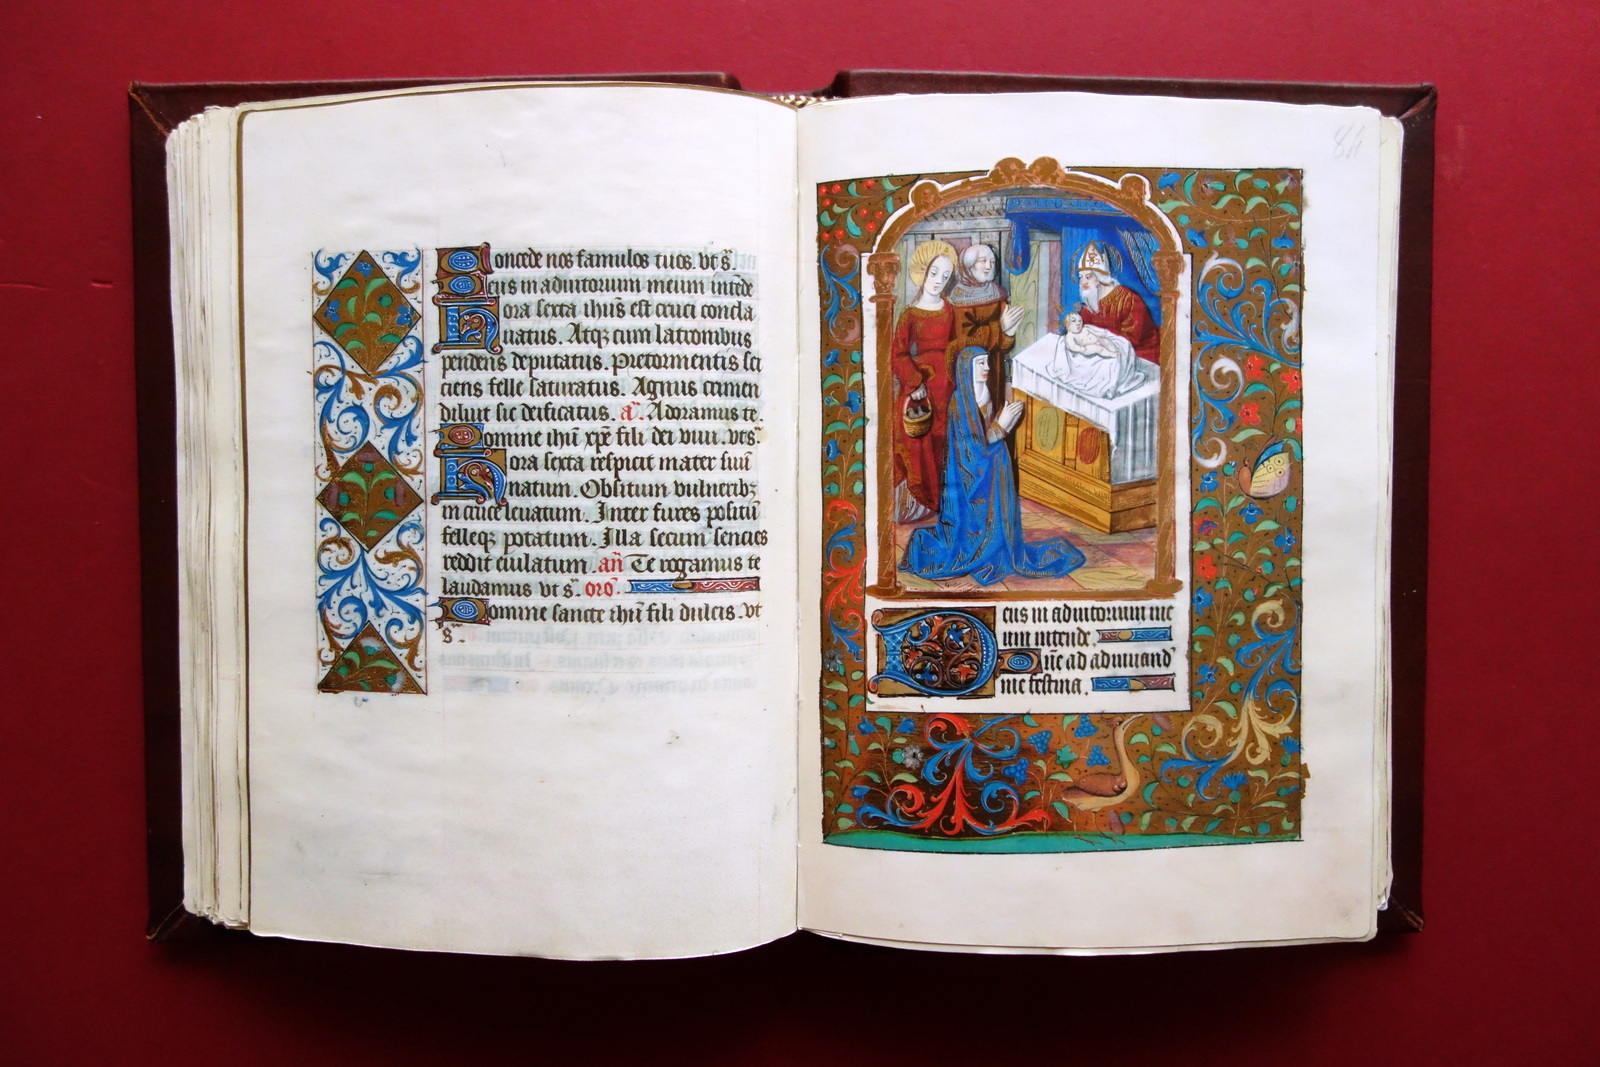 Concede nos famulos tuos. vt sͣ.
Deus in adiutorium meum intēde
Hora sexta ihūs est cruci concla
uatus. Atqꝫ cum latronibus
pendens deputatus. Pre tormentis sci
ciens felle saturatus. Agnus crimen
diluit sic deificatus. aͣ. Adoramus te.
Domine ihū xp̄e fili dei viui. vt sͣ.
Hora sexta respicit mater suū
natum. Oblitum vulneribꝫ
in cruce leuatum. Inter fures positū
felleqꝫ potatum. Illa secum sencies
reddit eiulatum. an̄ Te rogamus te
laudamus vt sͣ. oro᷑.
Domine sancte ihū fili dulcis. vt
sͣ.
84
Deus in adiutorium me
um intende.
Dn̄e ad adiuuand᷑
me festina.